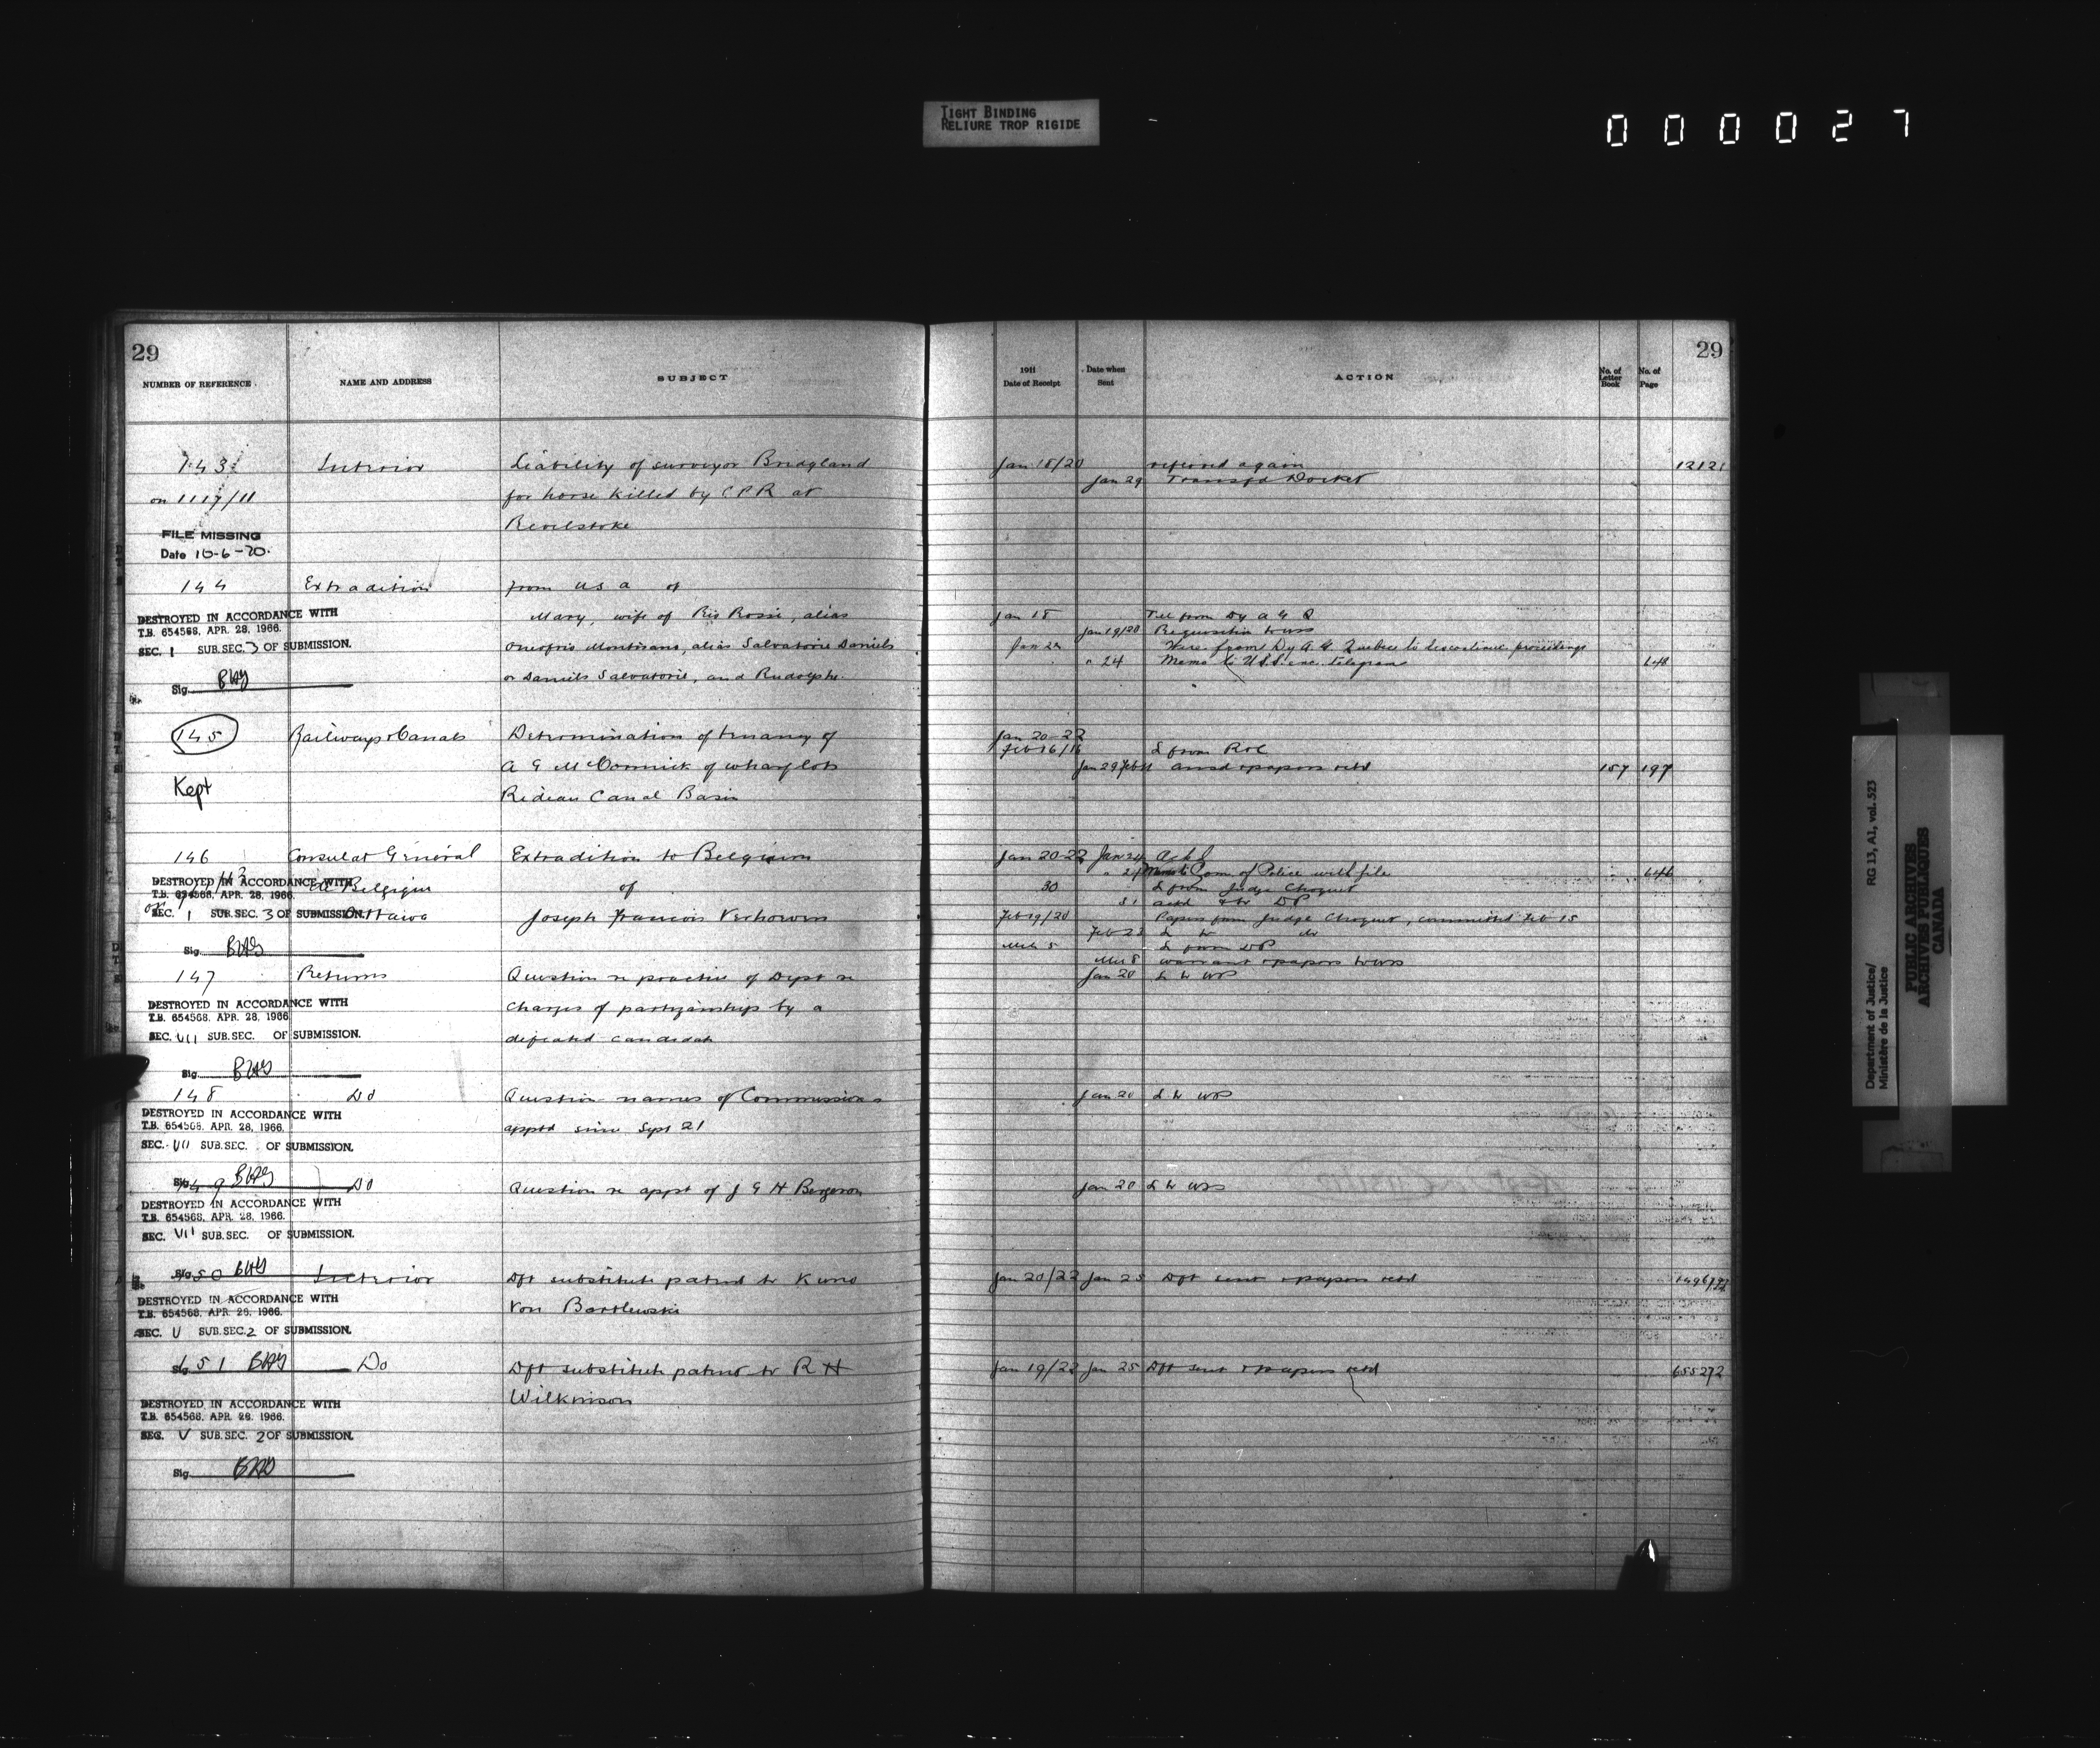 TIGHT BINDING
RELIURE TROP RIGIDE
000027
29
NUMBER OF REFERENCE
NAME AND ADDRESS
SUBJECT
143
Interior
Liability of surveyor Bridgland
on 1117/11
for horse killed by C P R at
Revelstoke
FILE MISSING
Date 10-6-70.
144
Extradition
from U S A of
DESTROYED IN ACCORDANCE WITH
T.B. 654568, APR. 28, 1966.
SEC. 1 SUB.SEC. 3 OF SUBMISSION.
Sig.
Mary, wife of Rossi, alias
alias Salvatorie Daniels
or Daniels Salvatorie, and Rudolphe.
145
Railways & Canals
Determination of tenancy of
A G McCormick of wharf lots
Kept
Rideau Canal Basin
146
Consulat Général
Extradition to Belgium
de Belgique
of
Ottawa
Joseph Francois
DESTROYED IN ACCORDANCE WITH
T.B. 654568, APR. 28, 1966.
SEC. 1 SUB.SEC. 3 OF SUBMISSION.
Sig.
147
Returns
Question re practice of Dept re
charges of partizanship by a
defeated candidate
DESTROYED IN ACCORDANCE WITH
T.B. 654568, APR. 28, 1966.
SEC. VII SUB.SEC. OF SUBMISSION.
Sig.
148
Do
Question names of Commissions
apptd since Sept 21
DESTROYED IN ACCORDANCE WITH
T.B. 654568, APR. 28, 1966.
SEC. VII SUB.SEC. OF SUBMISSION.
Sig.
149
Do
Question re appt of J G H Bergeron
DESTROYED IN ACCORDANCE WITH
T.B. 654568, APR. 28, 1966.
SEC. VII SUB.SEC. OF SUBMISSION.
Sig.
150
Interior
Dft substitute patent to Kuno
Von Bartlewski
DESTROYED IN ACCORDANCE WITH
T.B. 654568, APR. 28, 1966.
SEC. V SUB.SEC. 2 OF SUBMISSION.
Sig.
151
Do
Dft substitute patent to R H
Wilkinson
DESTROYED IN ACCORDANCE WITH
T.B. 654568, APR. 28, 1966.
SEC. V SUB.SEC. 2 OF SUBMISSION.
Sig.
29
1911
Date of Receipt
Date when Sent
ACTION
No. of Letter Book
No. of Page
Jan 18/20
referred again
12121
Jan 29
Transfd Docket
Jan 18
Tel from Dy A G Q
Jan 19/20
Requisition to
Wire from Dy A. G. Quebec to discontinue proceedings
" 24
Memo to U.S.S. enc. telegram
148
Jan 20-22
Feb 16/16
L from R&C
Jan 29
ansd & papers retd
157 197
Jan 20-22 Jan 24 Ackd
Com of Police with file
646
30
L from Judge Choquet
31
Feb 19/20
Papers from Judge Choquet, committed Feb 15
Feb 23
Mch 5
L from
Mch 8
warrant & papers to
Jan 20
Jan 20
Jan 20
Jan 20/22 Jan 25 Dft sent & papers retd
Jan 19/22 Jan 25 Dft sent & papers retd
655272
Department of Justice/
Ministère de la Justice
RG 13, A1, vol. 523
PUBLIC ARCHIVES
ARCHIVES PUBLIQUES
CANADA